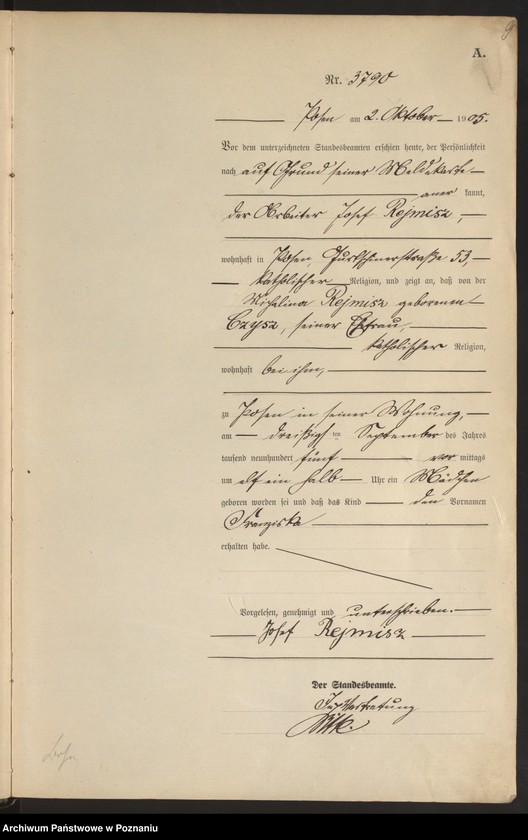 9
A.
Nr. 3790
Posen am 2. Oktober 1905.
Vor dem unterzeichneten Standesbeamten erschien heute, der Persönlichkeit
nach auf Grund seiner Meldekarte
aner kannt,
der Arbeiter Josef Rejmisz,
wohnhaft in Posen, 53,
katholischer Religion, und zeigt an, daß von der
Michalina Rejmisz geborenen
Czysz, seiner Ehefrau,
katholischer Religion,
wohnhaft bei ihm,
zu Posen in seiner Wohnung,
am dreißigsten September des Jahres
tausend neunhundert fünf vor mittags
um elf ein halb Uhr ein Mädchen
geboren worden sei und daß das Kind den Vornamen
Franziska
erhalten habe.
Vorgelesen, genehmigt und unterschrieben.
Josef Rejmisz
Der Standesbeamte.
In Vertretung
Archiwum Państwowe w Poznaniu